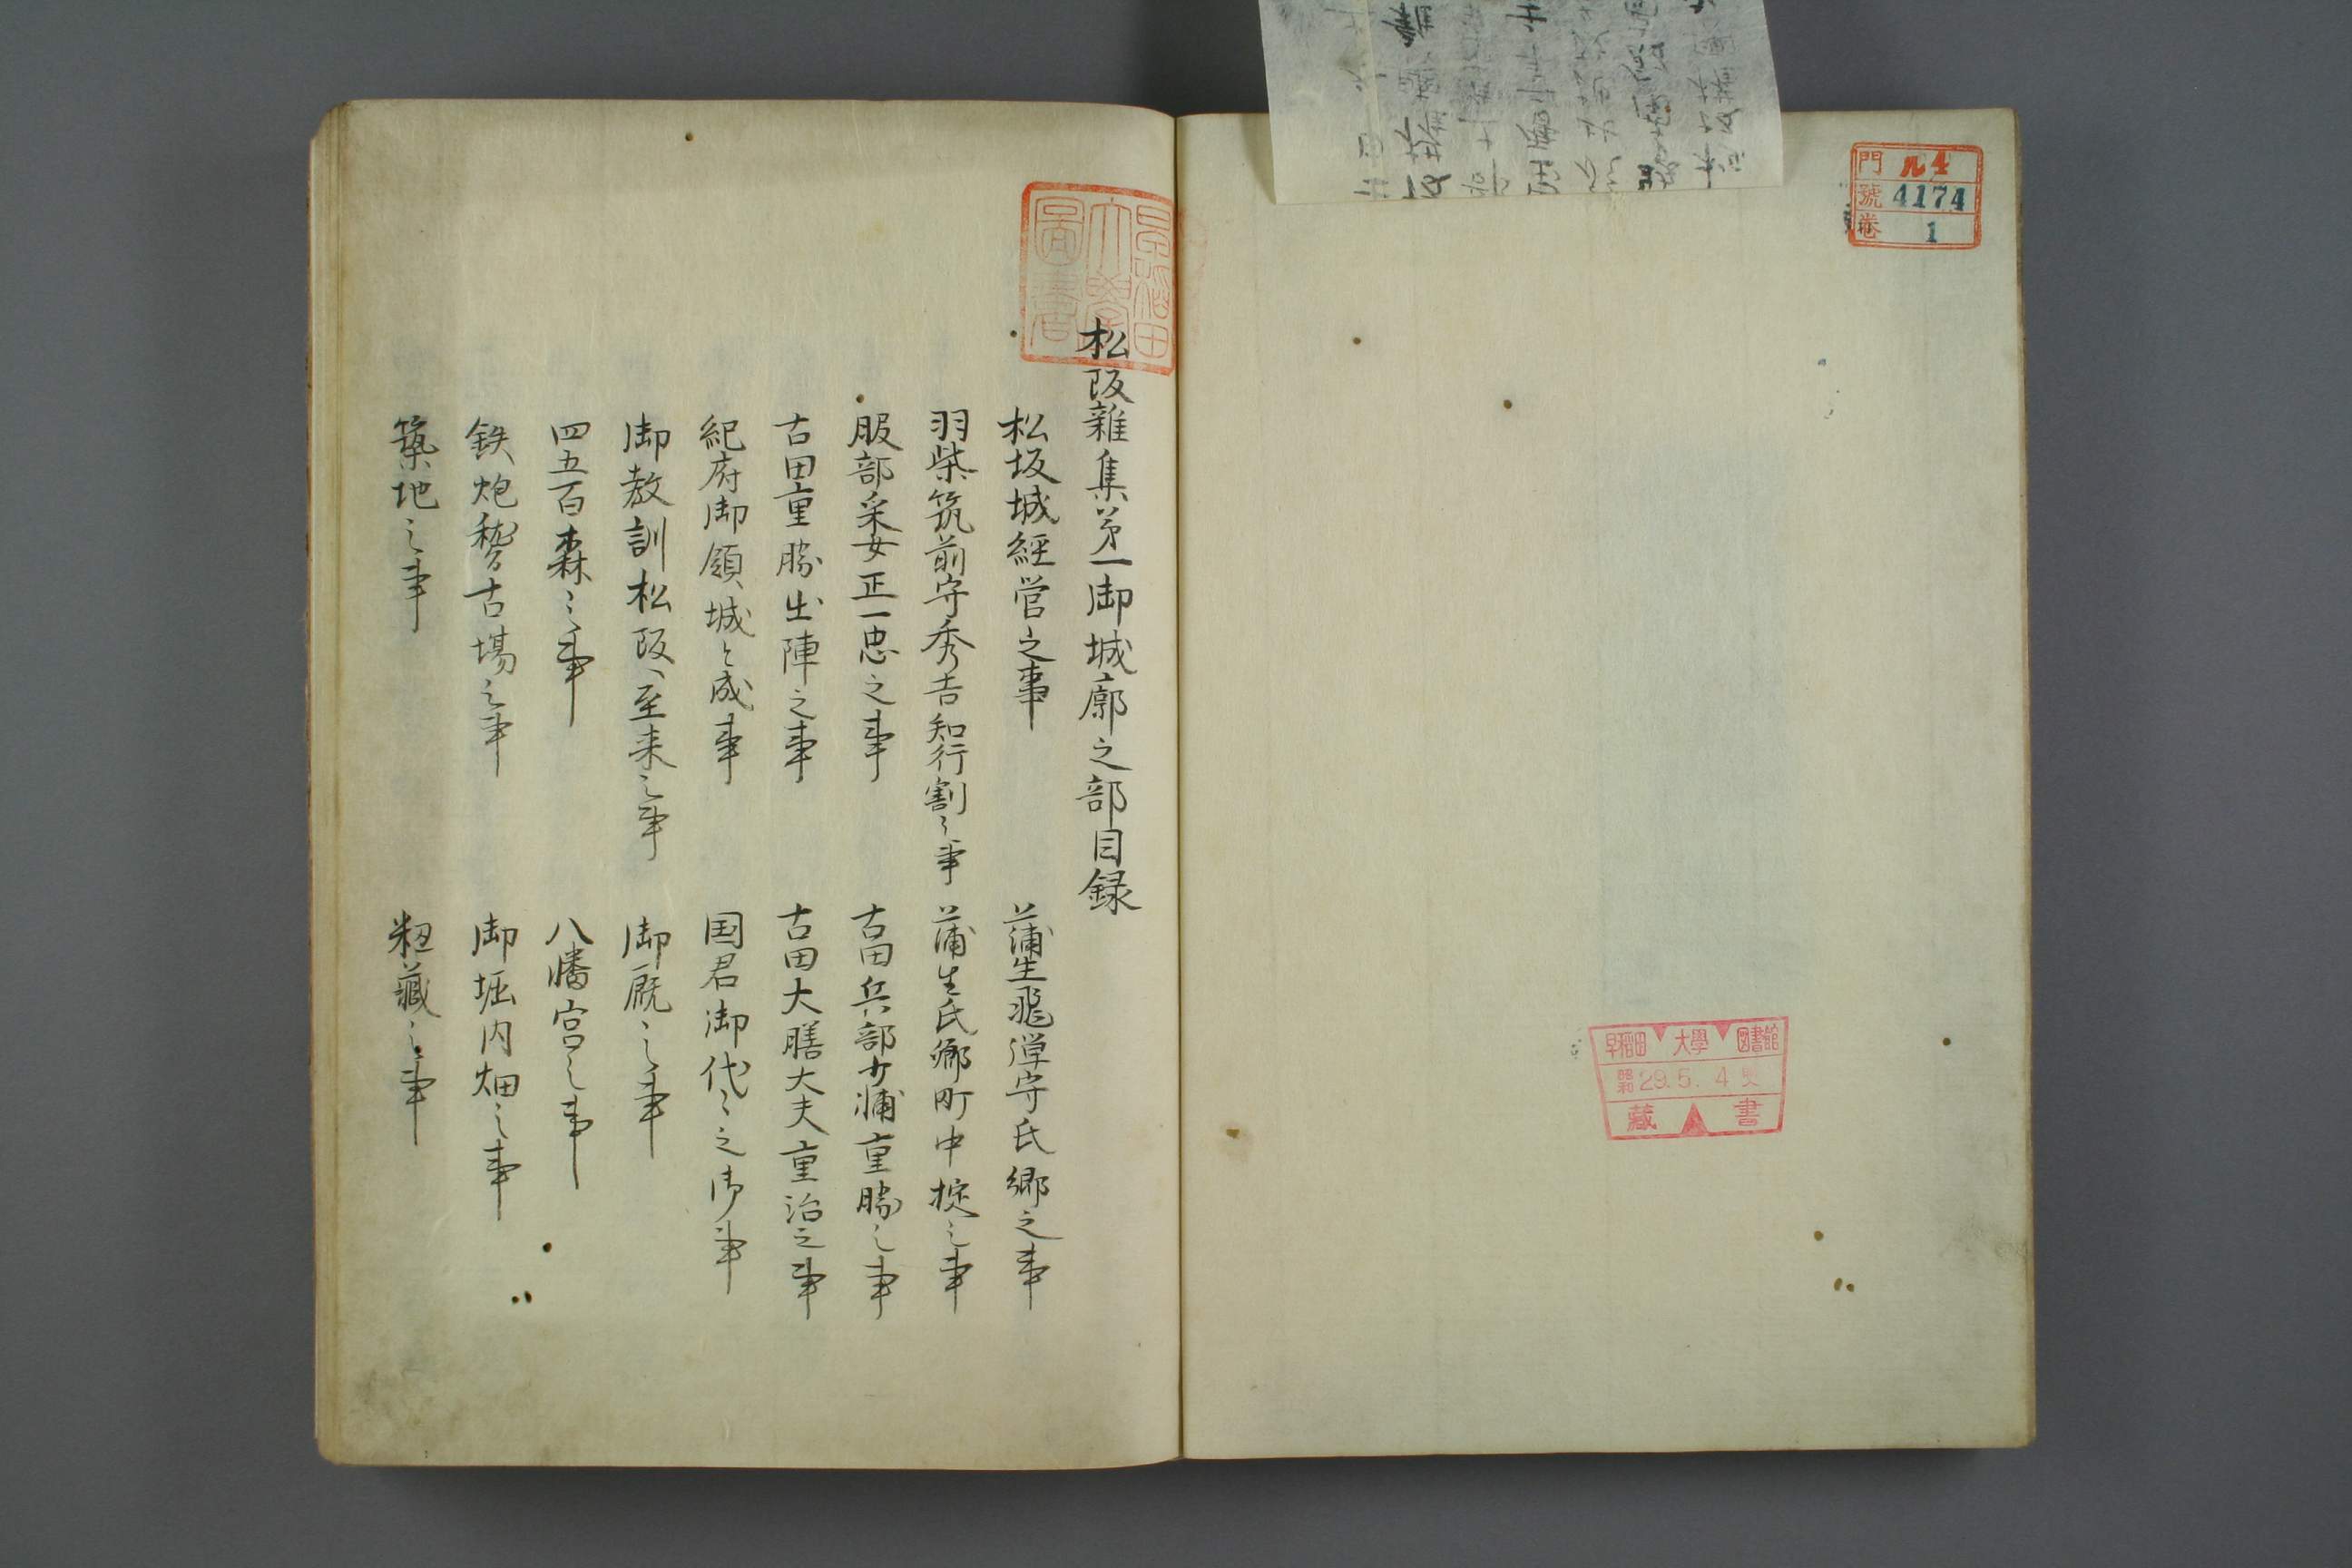 門 ル4
號 4174
卷 1
早稲田大學圖書館
昭和29.5.4
藏書
早稲田大學圖書
松阪雜集第一御城廓之部目録
松坂城經営之事
蒲生飛弾守氏郷之事
羽柴筑前守秀吉知行割之事
蒲生氏郷町中掟之事
服部采女正一忠之事
古田兵部少浦重勝之事
古田重勝出陣之事
古田大膳大夫重治之事
紀府御領城と成事
国君御代々之御事
御教訓松阪へ至来之事
御厩之事
四五百森之事
八幡宮之事
鉄炮稽古場之事
御堀内畑之事
築地之事
籾藏之事